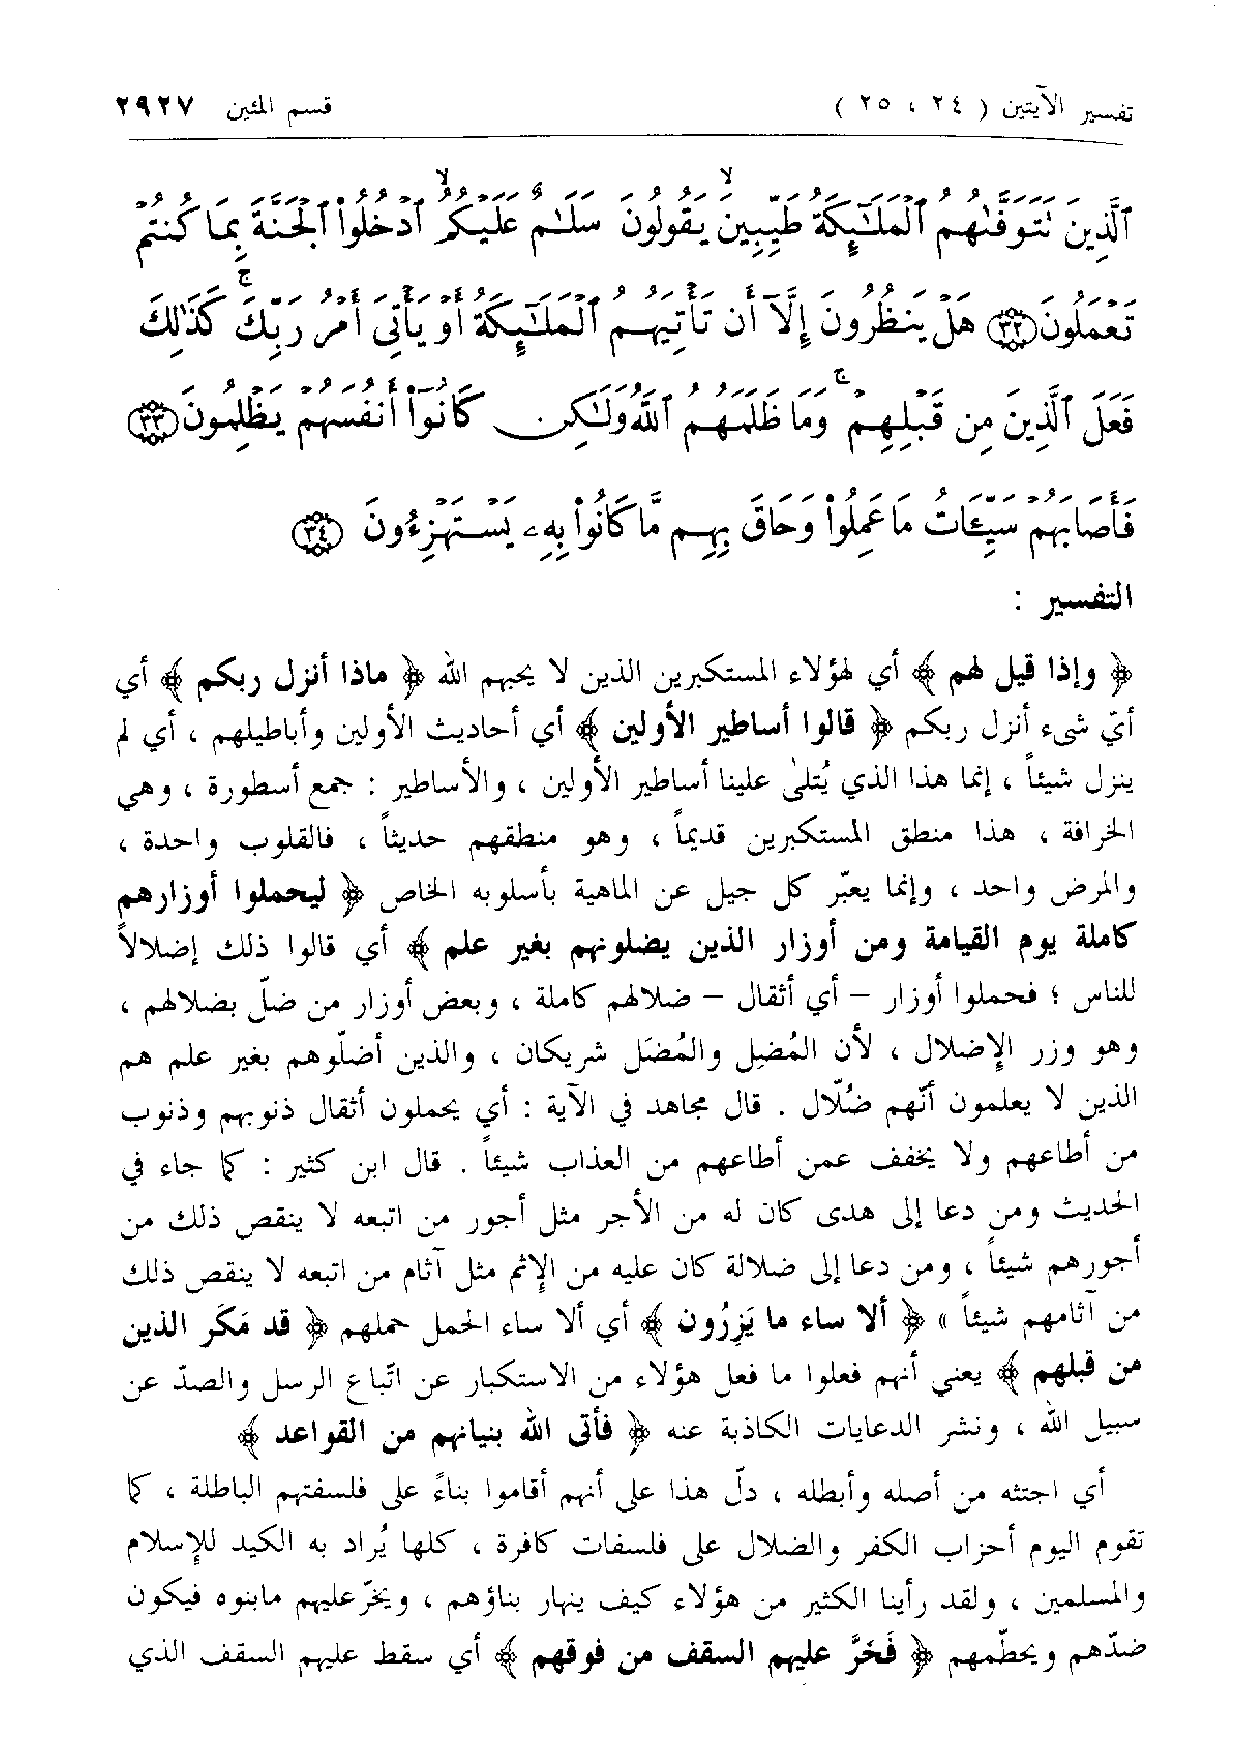 تفسير الآيتين ( ٢٤ ، ٢٥ ) قسم المئين ٢٩٢٧
ٱلَّذِينَ تَتَوَفَّىٰهُمُ ٱلْمَلَٰٓئِكَةُ طَيِّبِينَ يَقُولُونَ سَلَٰمٌ عَلَيْكُمُ ٱدْخُلُوا۟ ٱلْجَنَّةَ بِمَا كُنتُمْ
تَعْمَلُونَ ٣٢ هَلْ يَنظُرُونَ إِلَّآ أَن تَأْتِيَهُمُ ٱلْمَلَٰٓئِكَةُ أَوْ يَأْتِىَ أَمْرُ رَبِّكَ كَذَٰلِكَ
فَعَلَ ٱلَّذِينَ مِن قَبْلِهِمْ وَمَا ظَلَمَهُمُ ٱللَّهُ وَلَٰكِن كَانُوٓا۟ أَنفُسَهُمْ يَظْلِمُونَ ٣٣
فَأَصَابَهُمْ سَيِّـَٔاتُ مَا عَمِلُوا۟ وَحَاقَ بِهِم مَّا كَانُوا۟ بِهِۦ يَسْتَهْزِءُونَ ٣٤
التفسير :
﴿ وإذا قيل لهم ﴾ أي لهؤلاء المستكبرين الذين لا يحبهم الله ﴿ ماذا أنزل ربكم ﴾ أي
أيّ شىء أنزل ربكم ﴿ قالوا أساطير الأولين ﴾ أي أحاديث الأولين وأباطيلهم ، أي لم
ينزل شيئاً ، إنما هذا الذي يُتلى علينا أساطير الأولين ، والأساطير : جمع أسطورة ، وهي
الخرافة ، هذا منطق المستكبرين قديماً ، وهو منطقهم حديثاً ، فالقلوب واحدة ،
والمرض واحد ، وإنما يعبّر كل جيل عن الماهية بأسلوبه الخاص ﴿ ليحملوا أوزارهم
كاملة يوم القيامة ومن أوزار الذين يضلونهم بغير علم ﴾ أي قالوا ذلك إضلالاً
للناس ؛ فحملوا أوزار – أي أثقال – ضلالهم كاملة ، وبعض أوزار من ضلّ بضلالهم ،
وهو وزر الإضلال ، لأن المُضِل والمُضَل شريكان ، والذين أضلّوهم بغير علم هم
الذين لا يعلمون أنّهم ضُلّال . قال مجاهد في الآية : أي يحملون أثقال ذنوبهم وذنوب
من أطاعهم ولا يخفف عمن أطاعهم من العذاب شيئاً . قال ابن كثير : كما جاء في
الحديث ومن دعا إلى هدى كان له من الأجر مثل أجور من اتبعه لا ينقص ذلك من
أجورهم شيئاً ، ومن دعا إلى ضلالة كان عليه من الإثم مثل آثام من اتبعه لا ينقص ذلك
من آثامهم شيئاً » ﴿ ألا ساء ما يَزِرُون ﴾ أي ألا ساء الحمل حملهم ﴿ قد مَكَر الذين
من قبلهم ﴾ يعني أنهم فعلوا ما فعل هؤلاء من الاستكبار عن اتّباع الرسل والصدّ عن
سبيل الله ، ونشر الدعايات الكاذبة عنه ﴿ فأتى الله بنيانهم من القواعد ﴾
أي اجتثه من أصله وأبطله ، دلّ هذا على أنهم أقاموا بناءً على فلسفتهم الباطلة ، كما
تقوم اليوم أحزاب الكفر والضلال على فلسفات كافرة ، كلها يُراد به الكيد للإسلام
والمسلمين ، ولقد رأينا الكثير من هؤلاء كيف ينهار بناؤهم ، ويخرّ عليهم مابنوه فيكون
ضدّهم ويحطّمهم ﴿ فَخَرَّ عليهم السقف من فوقهم ﴾ أي سقط عليهم السقف الذي